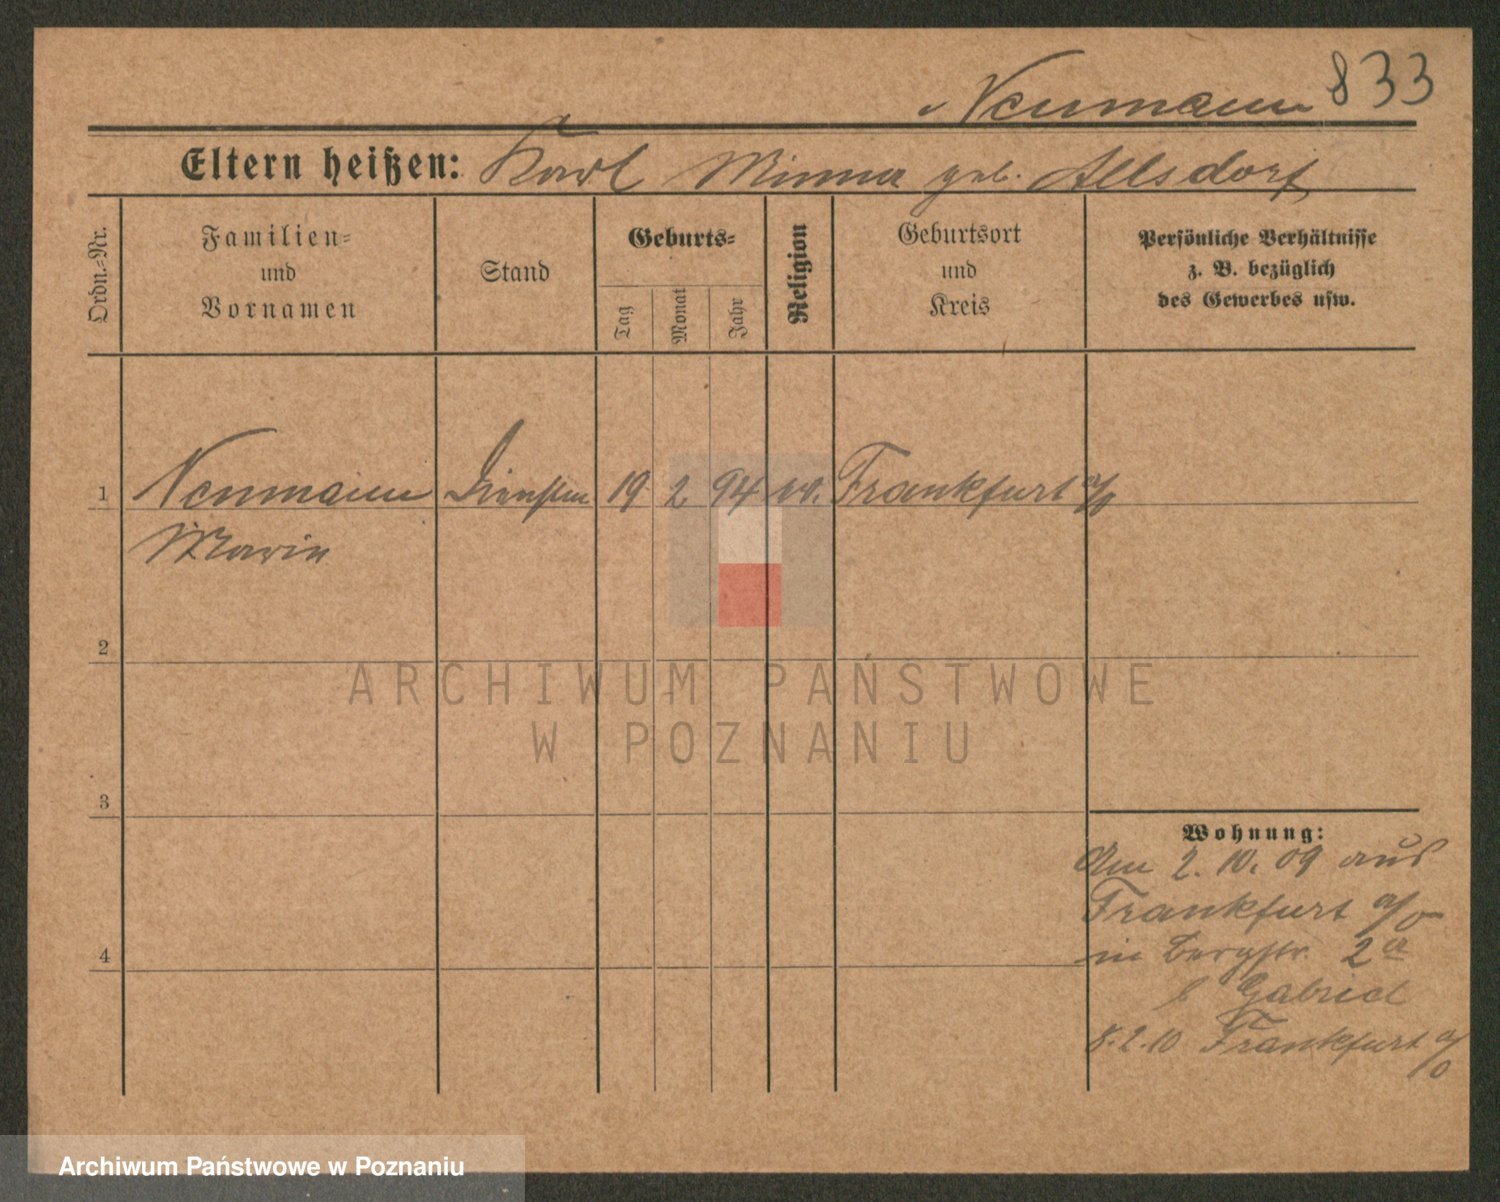 Neumann 833
Eltern heißen: Karl Minna geb. Allsdorf
Ordn.-Nr.
Familien-
und
Vornamen
Stand
Geburts-
Tag
Monat
Jahr
Religion
Geburtsort
und
Kreis
Persönliche Verhältnisse
z. B. bezüglich
des Gewerbes usw.
1 Neumann 19 2 94 Frankfurt a/o
Marie
2
ARCHIWUM PAŃSTWOWE
W POZNANIU
3
Wohnung:
Am 2. 10. 09 aus
Frankfurt a/o
in Bergstr. 2a
b Gabriel
4
8.2.10 Frankfurt a/o
Archiwum Państwowe w Poznaniu